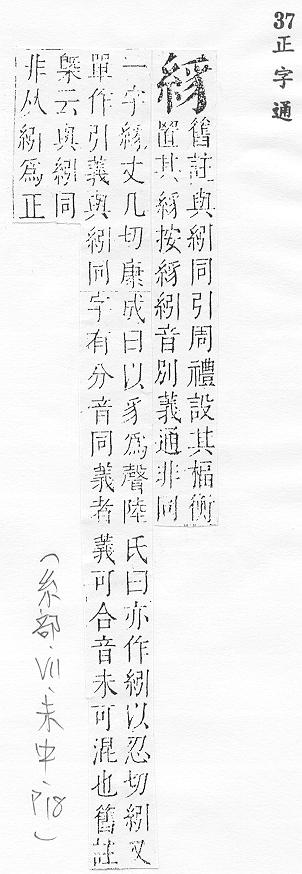 37正字通
絼舊註與紖同引周禮設其楅衡
置其絼按絼紖音別義通非同
一字絼丈几切康成曰以豸爲聲陸氏曰亦作紖以忍切紖又
單作引義與紖同字有分音同義者義可合音未可混也舊註
槩云與紖同
非从紖爲正
(糸部、VII、未中、P18)